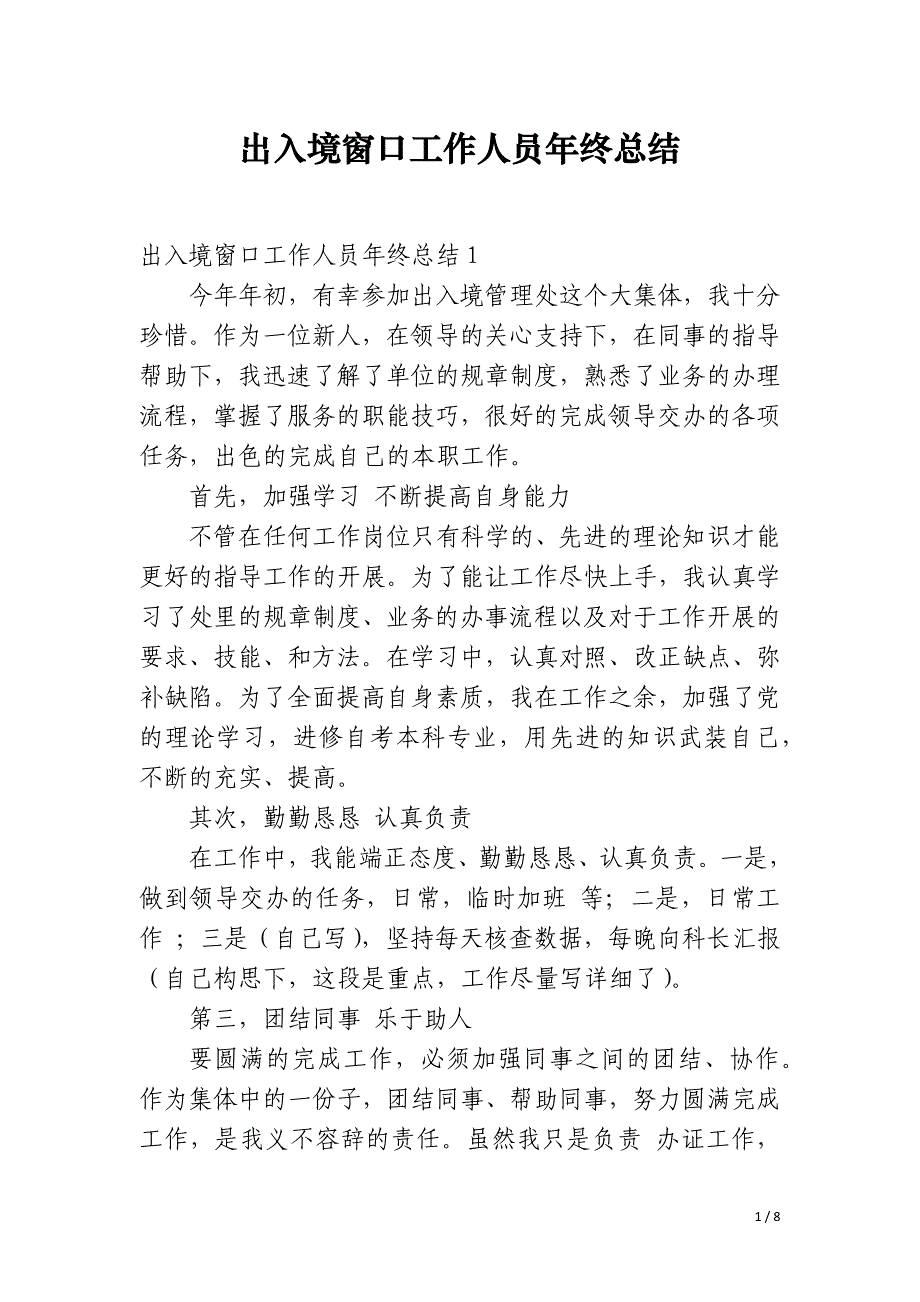 出入境窗口工作人员年终总结
出入境窗口工作人员年终总结1
今年年初，有幸参加出入境管理处这个大集体，我十分
珍惜。作为一位新人，在领导的关心支持下，在同事的指导
帮助下，我迅速了解了单位的规章制度，熟悉了业务的办理
流程，掌握了服务的职能技巧，很好的完成领导交办的各项
任务，出色的完成自己的本职工作。
首先，加强学习 不断提高自身能力
不管在任何工作岗位只有科学的、先进的理论知识才能
更好的指导工作的开展。为了能让工作尽快上手，我认真学
习了处里的规章制度、业务的办事流程以及对于工作开展的
要求、技能、和方法。在学习中，认真对照、改正缺点、弥
补缺陷。为了全面提高自身素质，我在工作之余，加强了党
的理论学习，进修自考本科专业，用先进的知识武装自己，
不断的充实、提高。
其次，勤勤恳恳 认真负责
在工作中，我能端正态度、勤勤恳恳、认真负责。一是，
做到领导交办的任务，日常，临时加班 等；二是，日常工
作 ；三是（自己写），坚持每天核查数据，每晚向科长汇报
（自己构思下，这段是重点，工作尽量写详细了）。
第三，团结同事 乐于助人
要圆满的完成工作，必须加强同事之间的团结、协作。
作为集体中的一份子，团结同事、帮助同事，努力圆满完成
工作，是我义不容辞的责任。虽然我只是负责 办证工作，
1 / 8